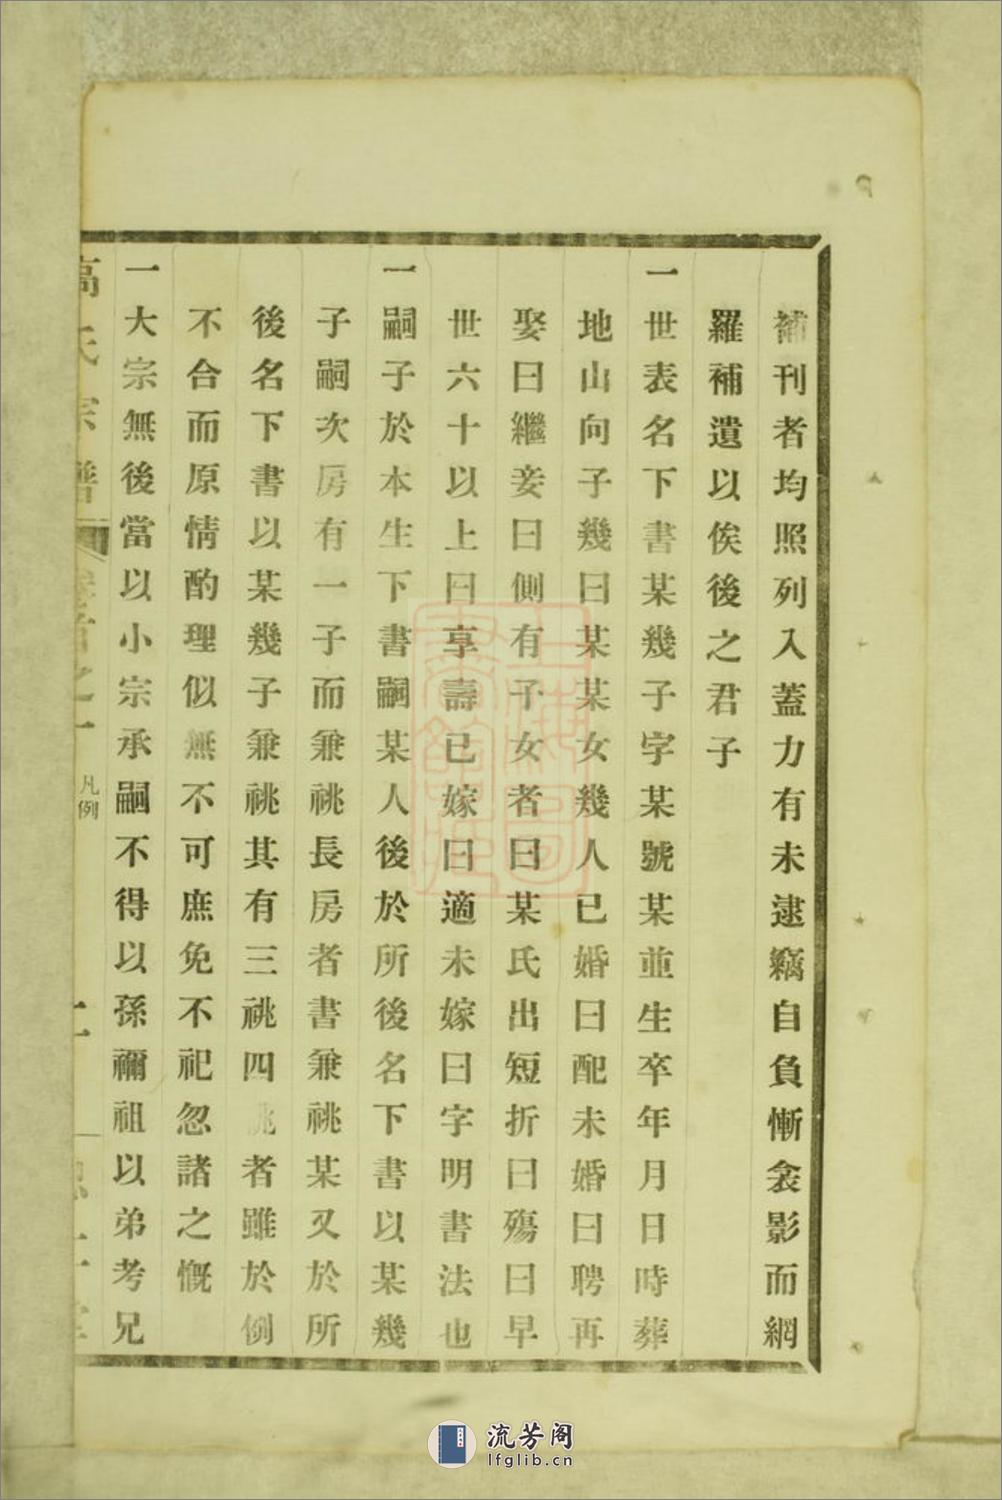 補刊者均照列入蓋力有未逮竊自負慚衾影而網
羅補遺以俟後之君子
一世表名下書某幾子字某號某並生卒年月日時葬
地山向子幾曰某某女幾人已婚曰配未婚曰聘再
娶曰繼妾曰側有子女者曰某氏出短折曰殤曰早
世六十以上曰享壽已嫁曰適未嫁曰字明書法也
一嗣子於本生下書嗣某人後於所後名下書以某幾
子嗣次房有一子而兼祧長房者書兼祧某又於所
後名下書以某幾子兼祧其有三祧四祧者雖於例
不合而原情酌理似無不可庶免不祀忽諸之慨
一大宗無後當以小宗承嗣不得以孫禰祖以弟考兄
高氏宗譜
卷首之一
凡例
流芳阁
lfglib.cn